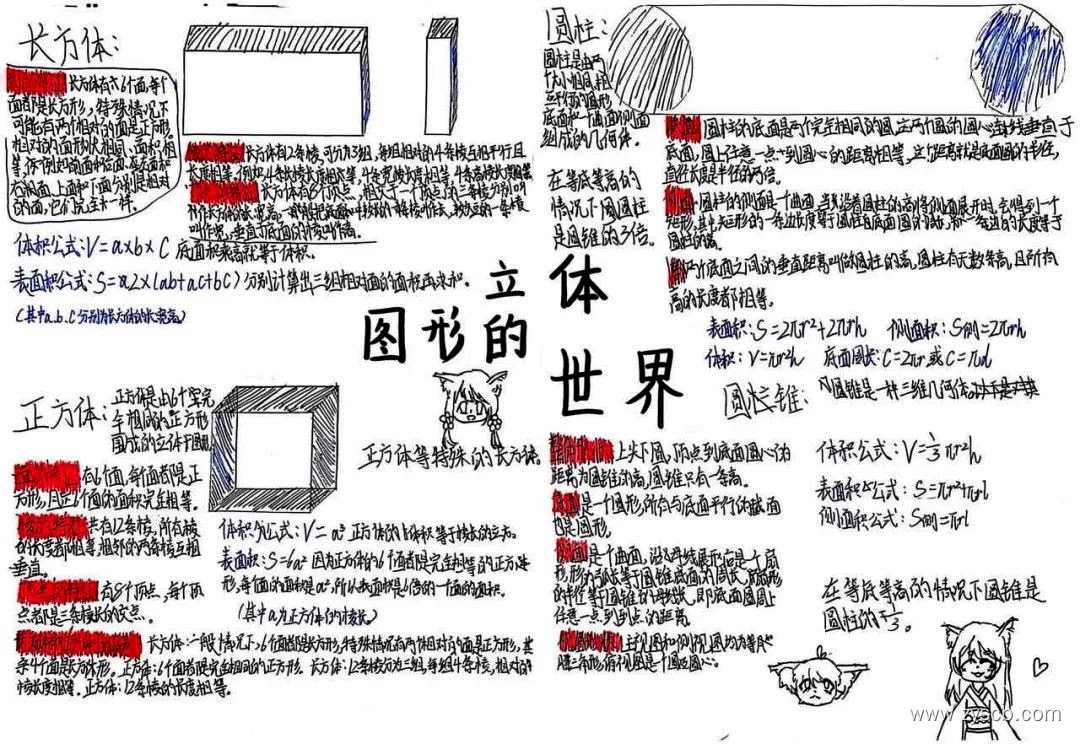 长方体:
长方体有六个面,每个
面都是长方形,特殊情况下
可能有两个相对的面是正方形。
相对的面形状相同,面积相
等,
的面,它们完全一样。
长方体有12条棱,可分为3组,每组相对的4条棱互相平行且
长度相等。
长方体有8个顶点,相交于一个顶点的三条棱分别叫
叫作宽,垂直于底面的棱叫作高。
体积公式:V=a×b×c 底面积乘高就等于体积。
表面积公式:S=a2×(ab+ac+bc)分别计算出三组相对面的面积再求和。
(其中a.b.c分别为长方体的长宽高)
立体
图形的
世界
正方体:
正方体是由6个完
全相同的正方形
围成的立体图形
有6个面,每个面都是正
方形,且这6个面的面积完全相等。
共有12条棱,所有棱
的长度都相等,相邻的两条棱互相
垂直。
有8个顶点,每个顶
点都是三条棱长的交点。
正方体等特殊的长方体。
体积公式:V=a³ 正方体的体积等于棱长的立方。
表面积:S=6a² 因为正方体的6个面都是完全相等的正方
形,每个面的面积是a²,所以表面积是6倍的一个面的面积。
(其中a为正方体的棱长)
长方体:一般情况下,6个面都是长方形,特殊情况有两个相对的面是正方形,其
余4个面是长方形。正方体:6个面都是完全相同的正方形。长方体:12条棱分为三组,每组4条棱,相对的
棱长度相等。正方体:12条棱的长度相等。
圆柱:
圆柱是由两
个大小相同,相
互平行的圆形
底面和一个曲面侧面
组成的几何体。
在等底等高的
情况下圆圆柱
是圆锥的3倍。
圆柱的底面是两个完全相同的圆,这两个圆的圆心连线垂直于
底面,圆上任意一点到圆心的距离相等,这个距离就是底面圆的半径,
直径长度是半径的两倍。
圆柱的侧面是一个曲面,当沿着圆柱的高将侧面展开时,会得到一个
矩形,其中矩形的一条边长度等于圆柱底面圆的周长,另一条边的长度等于
圆柱的高。
两个底面之间的垂直距离叫做圆柱的高,圆柱有无数条高,且所有
高的长度都相等。
表面积:S=2πr²+2πrh 侧面积:S侧=2πrh
体积:V=πr²h 底面周长:C=2πr或C=πd
圆柱锥:
圆锥是一种三维几何体
上尖下圆,顶点到底面圆心的
距离为圆锥的高,圆锥只有一条高。
是一个圆形,所有与底面平行的截面
也是圆形。
是一个曲面,沿母线展开后是一个扇
形,扇形的弧长等于圆锥底面的周长,扇形
的半径等于圆锥的母线长,即底面圆周上
任意一点到顶点的距离。
主视图和侧视图均为等
腰三角形,俯视图是一个圆及圆心。
体积公式:V=⅓πr²h
表面积公式:S=πr²+πrl
侧面积公式:S侧=πrl
在等底等高的情况下圆锥是
圆柱的⅓。
www.zyscb.com